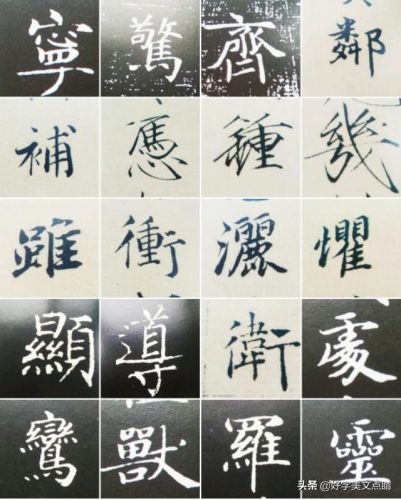 寧 驚 齊 鄰
補 憑 鍾 幾
雖 衝 灑 懼
顯 導 衛 處
鸞 獸 羅 靈
头条 @好字美文点睛